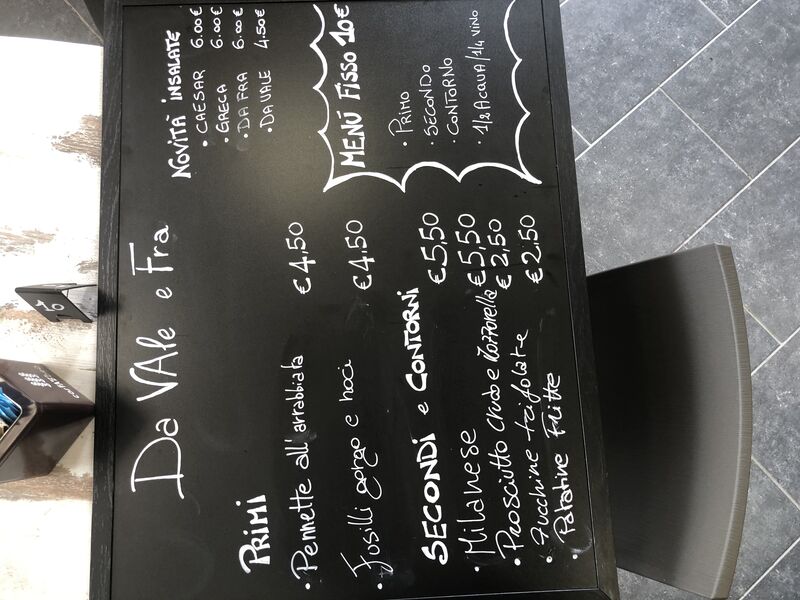 Da VAle e Fra
PRIMI
• Pennette all'arrabbiata € 4,50
• Fusilli gorgo e noci € 4,50
SECONDI e CONTORNI
• Milanese € 5,50
• Prosciutto crudo e Mozzarella € 5,50
• Zucchine trifolate € 2,50
• Patatine Fritte € 2,50
NOVITÀ INSALATE
• CAESAR 6.00€
• GRECA 6.00€
• DA FRA 6.00€
• DA VALE 4.50€
MENÚ FISSO 10€
• PRIMO
• SECONDO
• CONTORNO
• 1/2 ACQUA/1/4 VINO
10